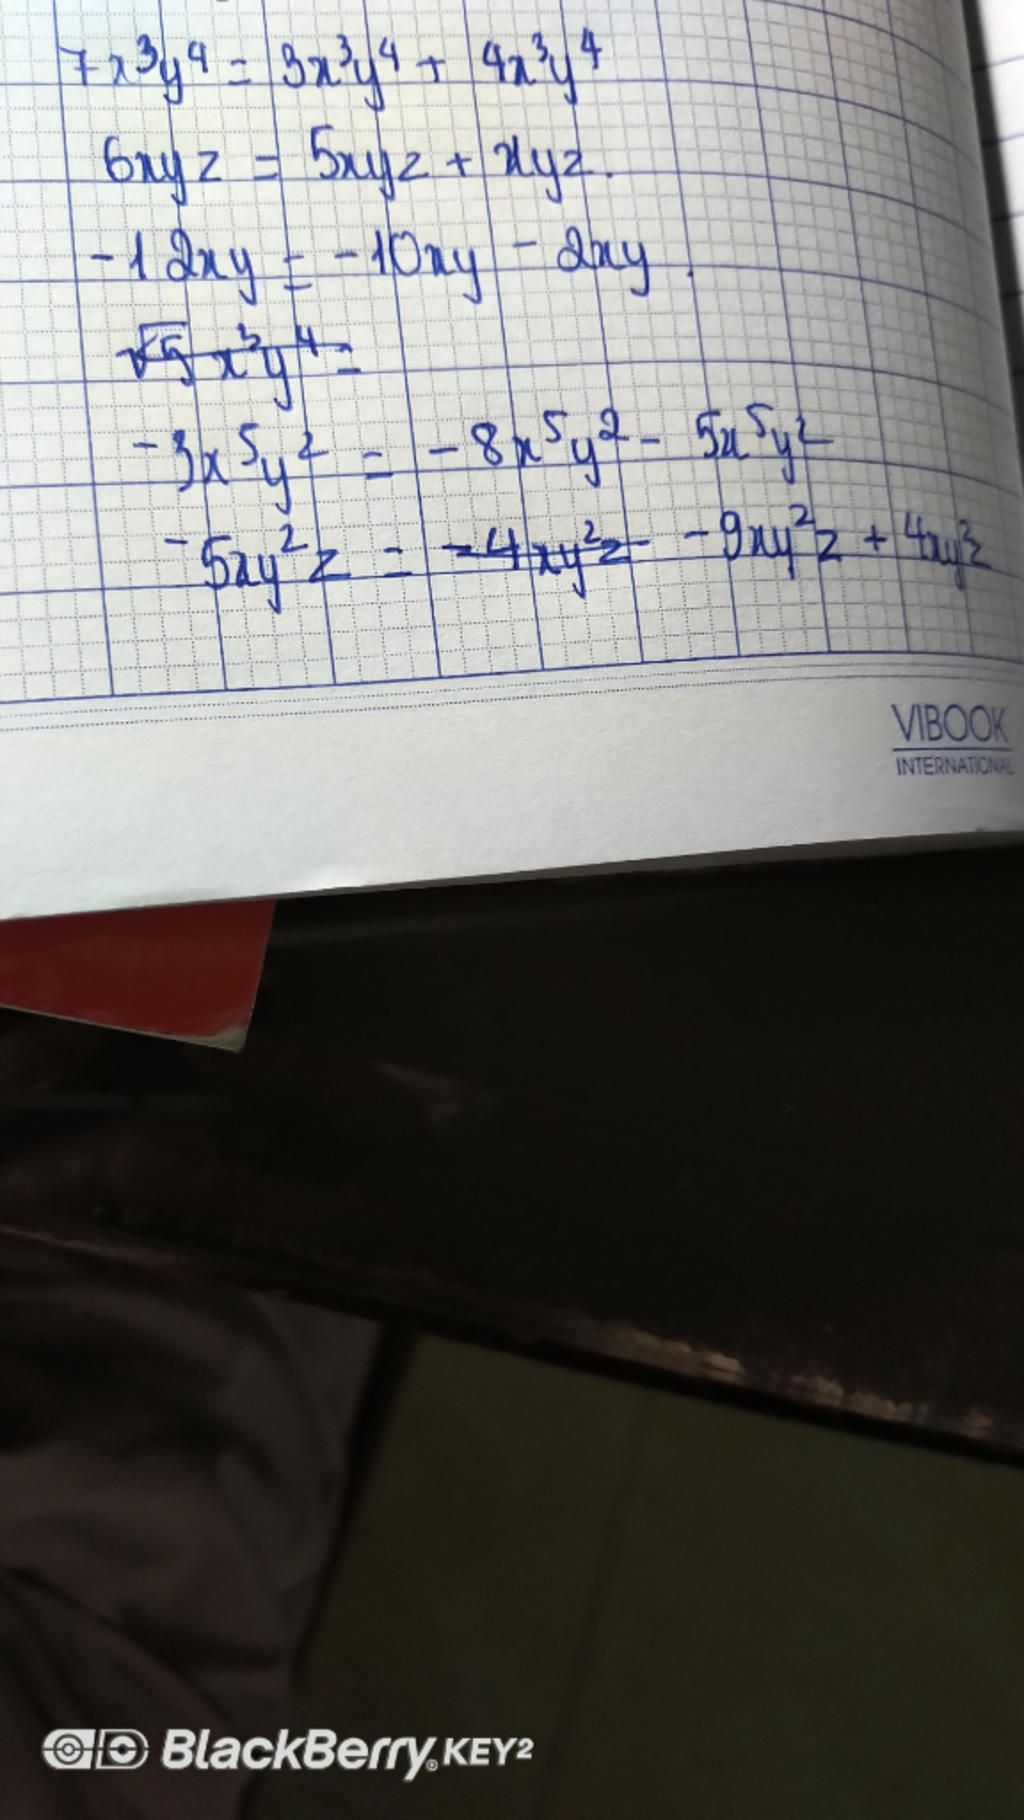 7x³y⁴ = 3x³y⁴ + 4x³y⁴
6xyz = 5xyz + xyz.
-12xy = -10xy - 2xy.
√5 x³y⁴ =
-3x⁵y² = -8x⁵y² - 5x⁵y²
-5xy²z = -4xy²z -9xy²z + 4xy²z
VIBOOK
INTERNATIONAL
BlackBerry® KEY2